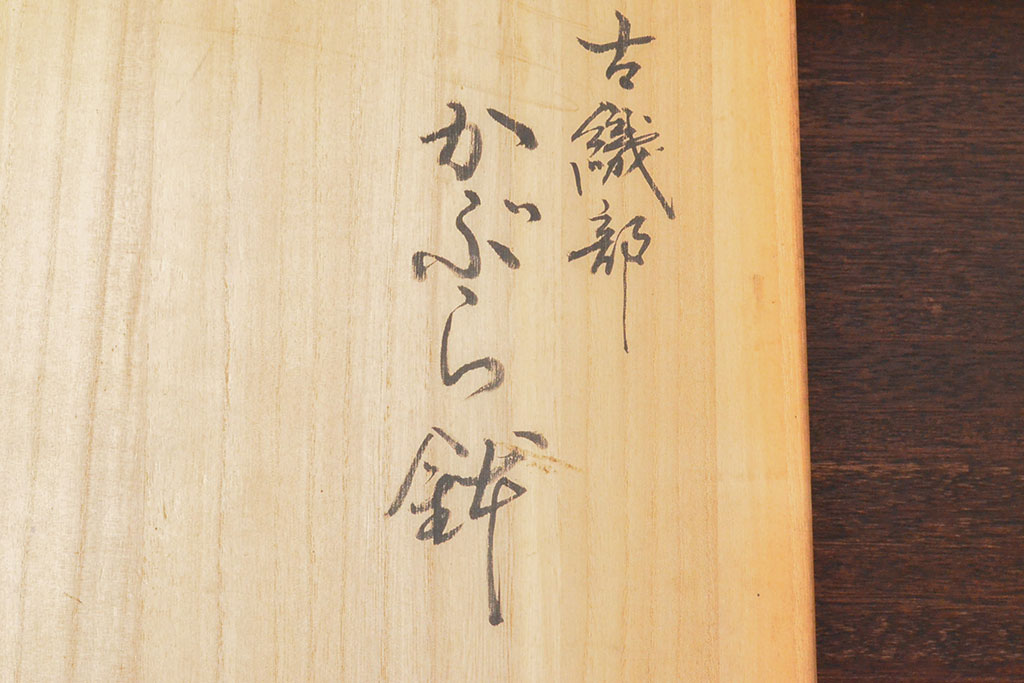 古織部
かぶら鉢